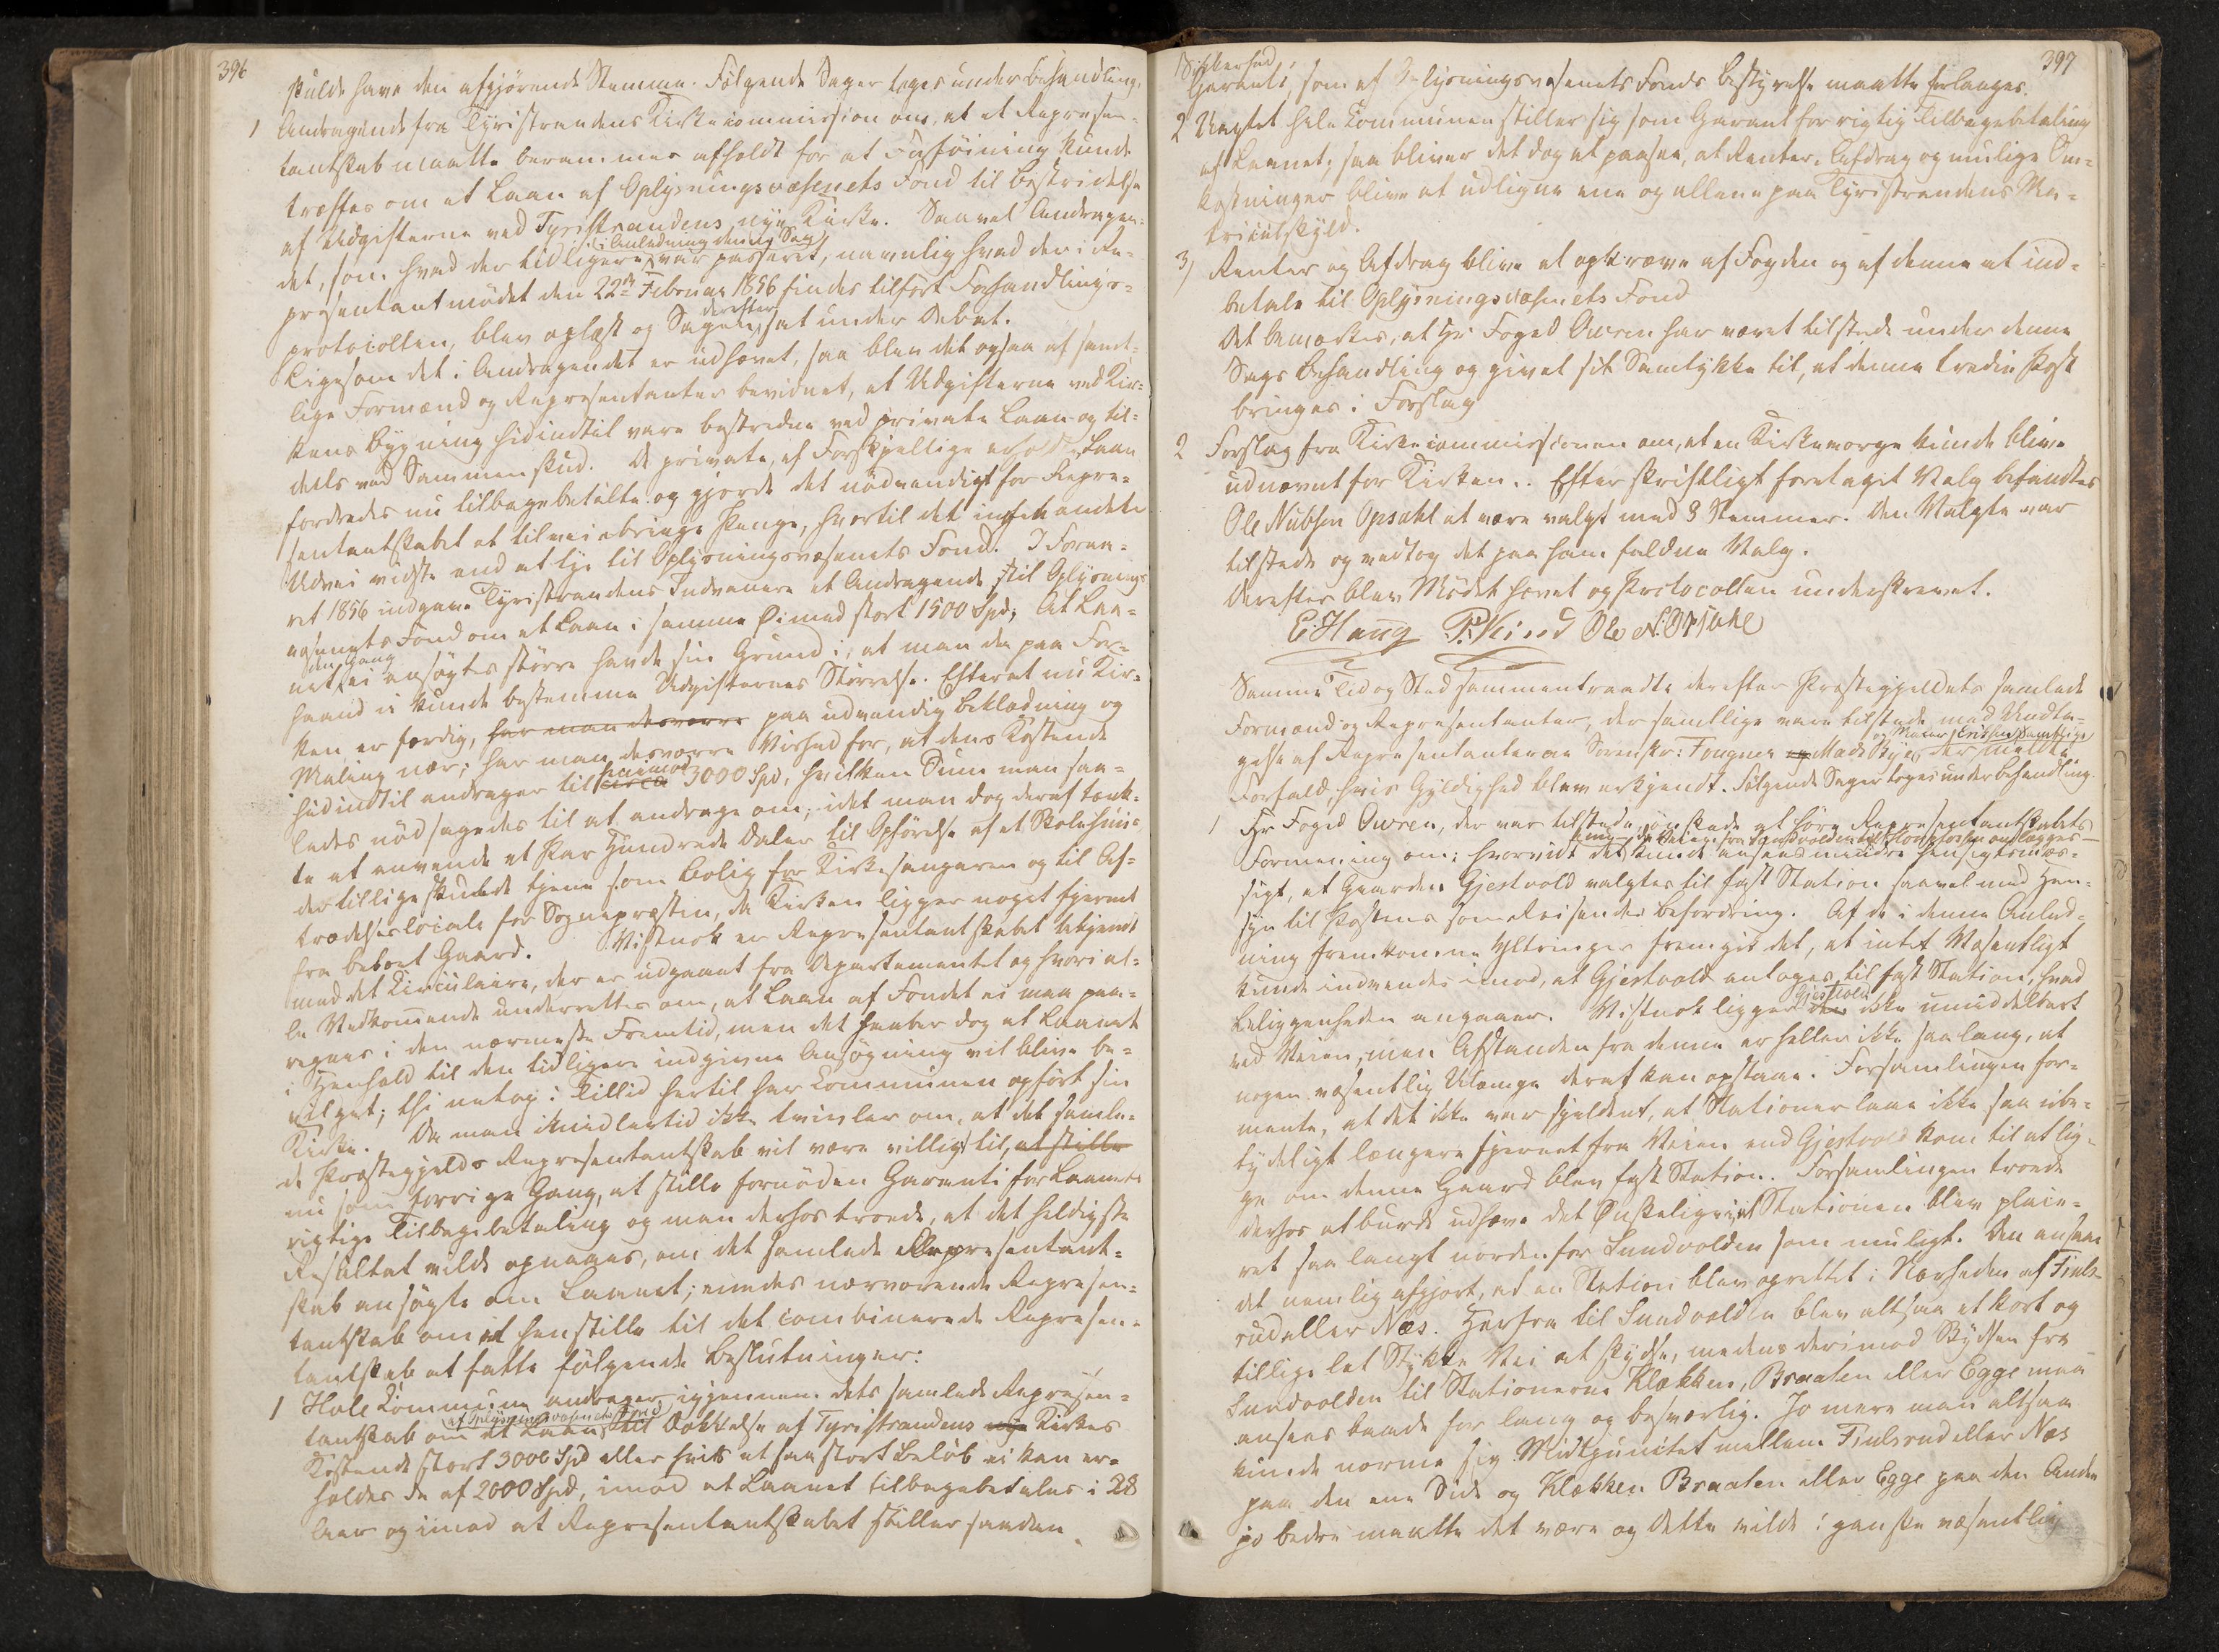 396
skulde have den afgjørende Stemme. Følgende Sager toges under Behandling.
1 Andragende fra Tyristrandens Kirkecommission om, at et Represen-
tantskab maatte berammes afholdt for at Føiøining kunde
træffes om et Laan af Oplysningsvæsenets Fond til Bestridelse
af Udgifterne ved Tyristrandens nye Kirke. Saavel Andragen-
det, som hvad der tidligere i Anledning denne Sag var passeret, navnlig hvad der i Re-
presentantmødet den 22de Februar 1856 findes tilført Forhandlings-
protocollen, blev oplæst og Sagen derefter sat under Debat.
Ligesom det i Andragendet er udhævet, saa blev det ogsaa af samt-
lige Formænd og Representanter bevidnet, at Udgifterne ved Kir-
kens Bygning hidindtil vare bestredne ved private Laan og til-
deels ved Sammenskud. De private, af Forskjellige erholdte Laan
fordredes nu tilbagebetalte og gjorde det nødvendigt for Repre-
sentantskabet at tilveiebringe Penge, hvortil det ingen anden
Udvei vidste end at tye til Oplysningsvæsenets Fond. I Foraa-
ret 1856 indgave Tyristrandens Indvaanere et Andragende til Oplysnings-
væsenets Fond om et Laan i samme Øimed stort 1500 Spd; At Laa-
net den Gang ei ansøgtes større havde sin Grund i, at man da paa For-
haand ei kunde bestemme Udgifternes Størrelse. Efterat nu Kir-
ken er færdig, har man desværre paa udvendig Beklædning og
Maling nær, har man desværre Vished for, at dens Kostende
hidindtil andrager til henimod circa 3000 Spd, hvilken Sum man saa-
ledes nødsagedes til at andrage om, idet man dog deraf tænk-
te at anvende et Par Hundrede Daler til Opførelse af et Skolehuus
der tillige skulde tjene som Bolig for Kirkesangeren og til Af-
trædelseslocale for Sognepræsten, da Kirken ligger noget fjernet
fra beboet Gaard. Vistnok er Representantskabet bekjendt
med det Circulaire, der er udgaaet fra Departementet og hvori al-
le Vedkommende underrettes om, at Laan af Fondet ei maa paa-
regnes i den nærmeste Fremtid, men det haaber dog at Laanet
i Henhold til den tidligere indgivne Ansøgning vil blive be-
vilget; thi netop i Tillid hertil har Communen opført sin
Kirke. Da man imidlertid ikke tvivler om, at det samle-
de Præstegjelds Representantskab vil være villigt til, at stille
nu som forrige Gang, at stille fornøden Garanti for Laanets
rigtige Tilbagebetaling og man derhos troede, at det heldigste
Resultat vilde opnaaes, om det samlede Representant-
skab ansøgte om Laanet; eenedes nærværende Represen-
tantskab om at henstille til det combinerede Represen-
tantskab at fatte følgende Beslutninger:
1 Hole Commune andrager igjennem dets samlede Represen-
tantskab om et Laan af Oplysningsvæsenets Fond til Dækkelse af Tyristrandens nye Kirkes
Kostende stort 3000 Spd eller hvis et saa stort Beløb ei kan er-
holdes da af 2000 Spd, imod at Laanet tilbagebetales i 28
Aar og imod at Representantskabet stiller saadan
397
Sikkerhed,
Garanti, som af Oplysningsvæsenets Fonds Bestyrelse maatte forlanges.
2 Uagtet hele Communen stiller sig som Garant for rigtig Tilbagebetaling
af Laanet, saa bliver det dog at paasee, at Renter, Afdrag og mulige Om-
kostninger blive at udligne ene og allene paa Tyristrandens Ma-
triculskyld.
3) Renter og Afdrag blive at opkræve af Fogden og af denne at ind-
betale til Oplysningsvæsenets Fond
Det bemærkes, at Hr Foged Owren har været tilstede under denne
Sags Behandling og givet sit Samtykke til, at denne tredie Post
bringes i Forslag
2 Forslag fra Kirkecommissionen om, at en Kirkeværge kunde blive
udnævnt for Kirken.. Efter skriftligt foretaget Valg befandtes
Ole Nubsen Opsahl at være valgt med 8 Stemmer. Den Valgte var
tilstede og vedtog det paa ham faldne Valg.
Derefter blev Mødet hævet og Protocollen underskrevet.
E. Haug P. Vei Ole N. Opsahl
Samme Tid og Sted sammentraadte derefter Præstegjeldets samlede
Formænd og Representanter, der samtlige vare tilstede med Undta-
gelse af Representanterne Sorenskr: Fougner og Mads Bye, og samtlige der meldte
Forfald, hvis Gyldighed blev erkjendt. Følgende Sager toges under Behandling.
1 Hr Foged Owren, der var tilstede, ønskede at høre Representantskabets
Formening om; hvorvidt det kunde ansees mindre hensigtsmæs-
sigt, at Gaarden Gjestvold valgtes til fast Station saavel med Hen-
syn til Postens som Reisendes Befordring. Af de i denne Anled-
ning fremkomne Yttringer fremgik det, at intet Væsentligt
kunde indvendes imod, at Gjestvold antoges til fast Station, hvad
Beliggenheden angaaer. Vistnok ligger Gjestvold ikke umiddelbart
ved Veien, men Afstanden fra denne er heller ikke saa lang, at
nogen væsentlig Ulempe deraf kan opstaae. Forsamlingen for-
mente, at det ikke var sjeldent, at Stationer laae ikke saa ube-
tydeligt længere fjernet fra Veien end Gjestvold kom til at lig-
ge om denne Gaard blev fast Station. Forsamlingen troede
derhos at burde udhæve det Ønskelige i, at Stationen blev place-
ret saa langt norden for Sundvolden som muligt. Den ansaae
det nemlig afgjort, at en Station blev oprettet i Nærheden af Fiuls-
rud eller Næs. Herfra til Sundvolden blev altsaa et kort og
tillige let Stykke Vei at skydse, medens derimod Skydsen fra
Sundvolden til Stationerne Klækken, Braaten eller Egge maa
ansees baade for lang og besværlig. Jo mere man altsaa
kunde nærme sig Midtpunctet mellem Fiulsrud eller Næs
paa den ene Side og Klækken Braaten eller Egge paa den Anden
jo bedre maatte det være og dette vilde i ganske væsentlig